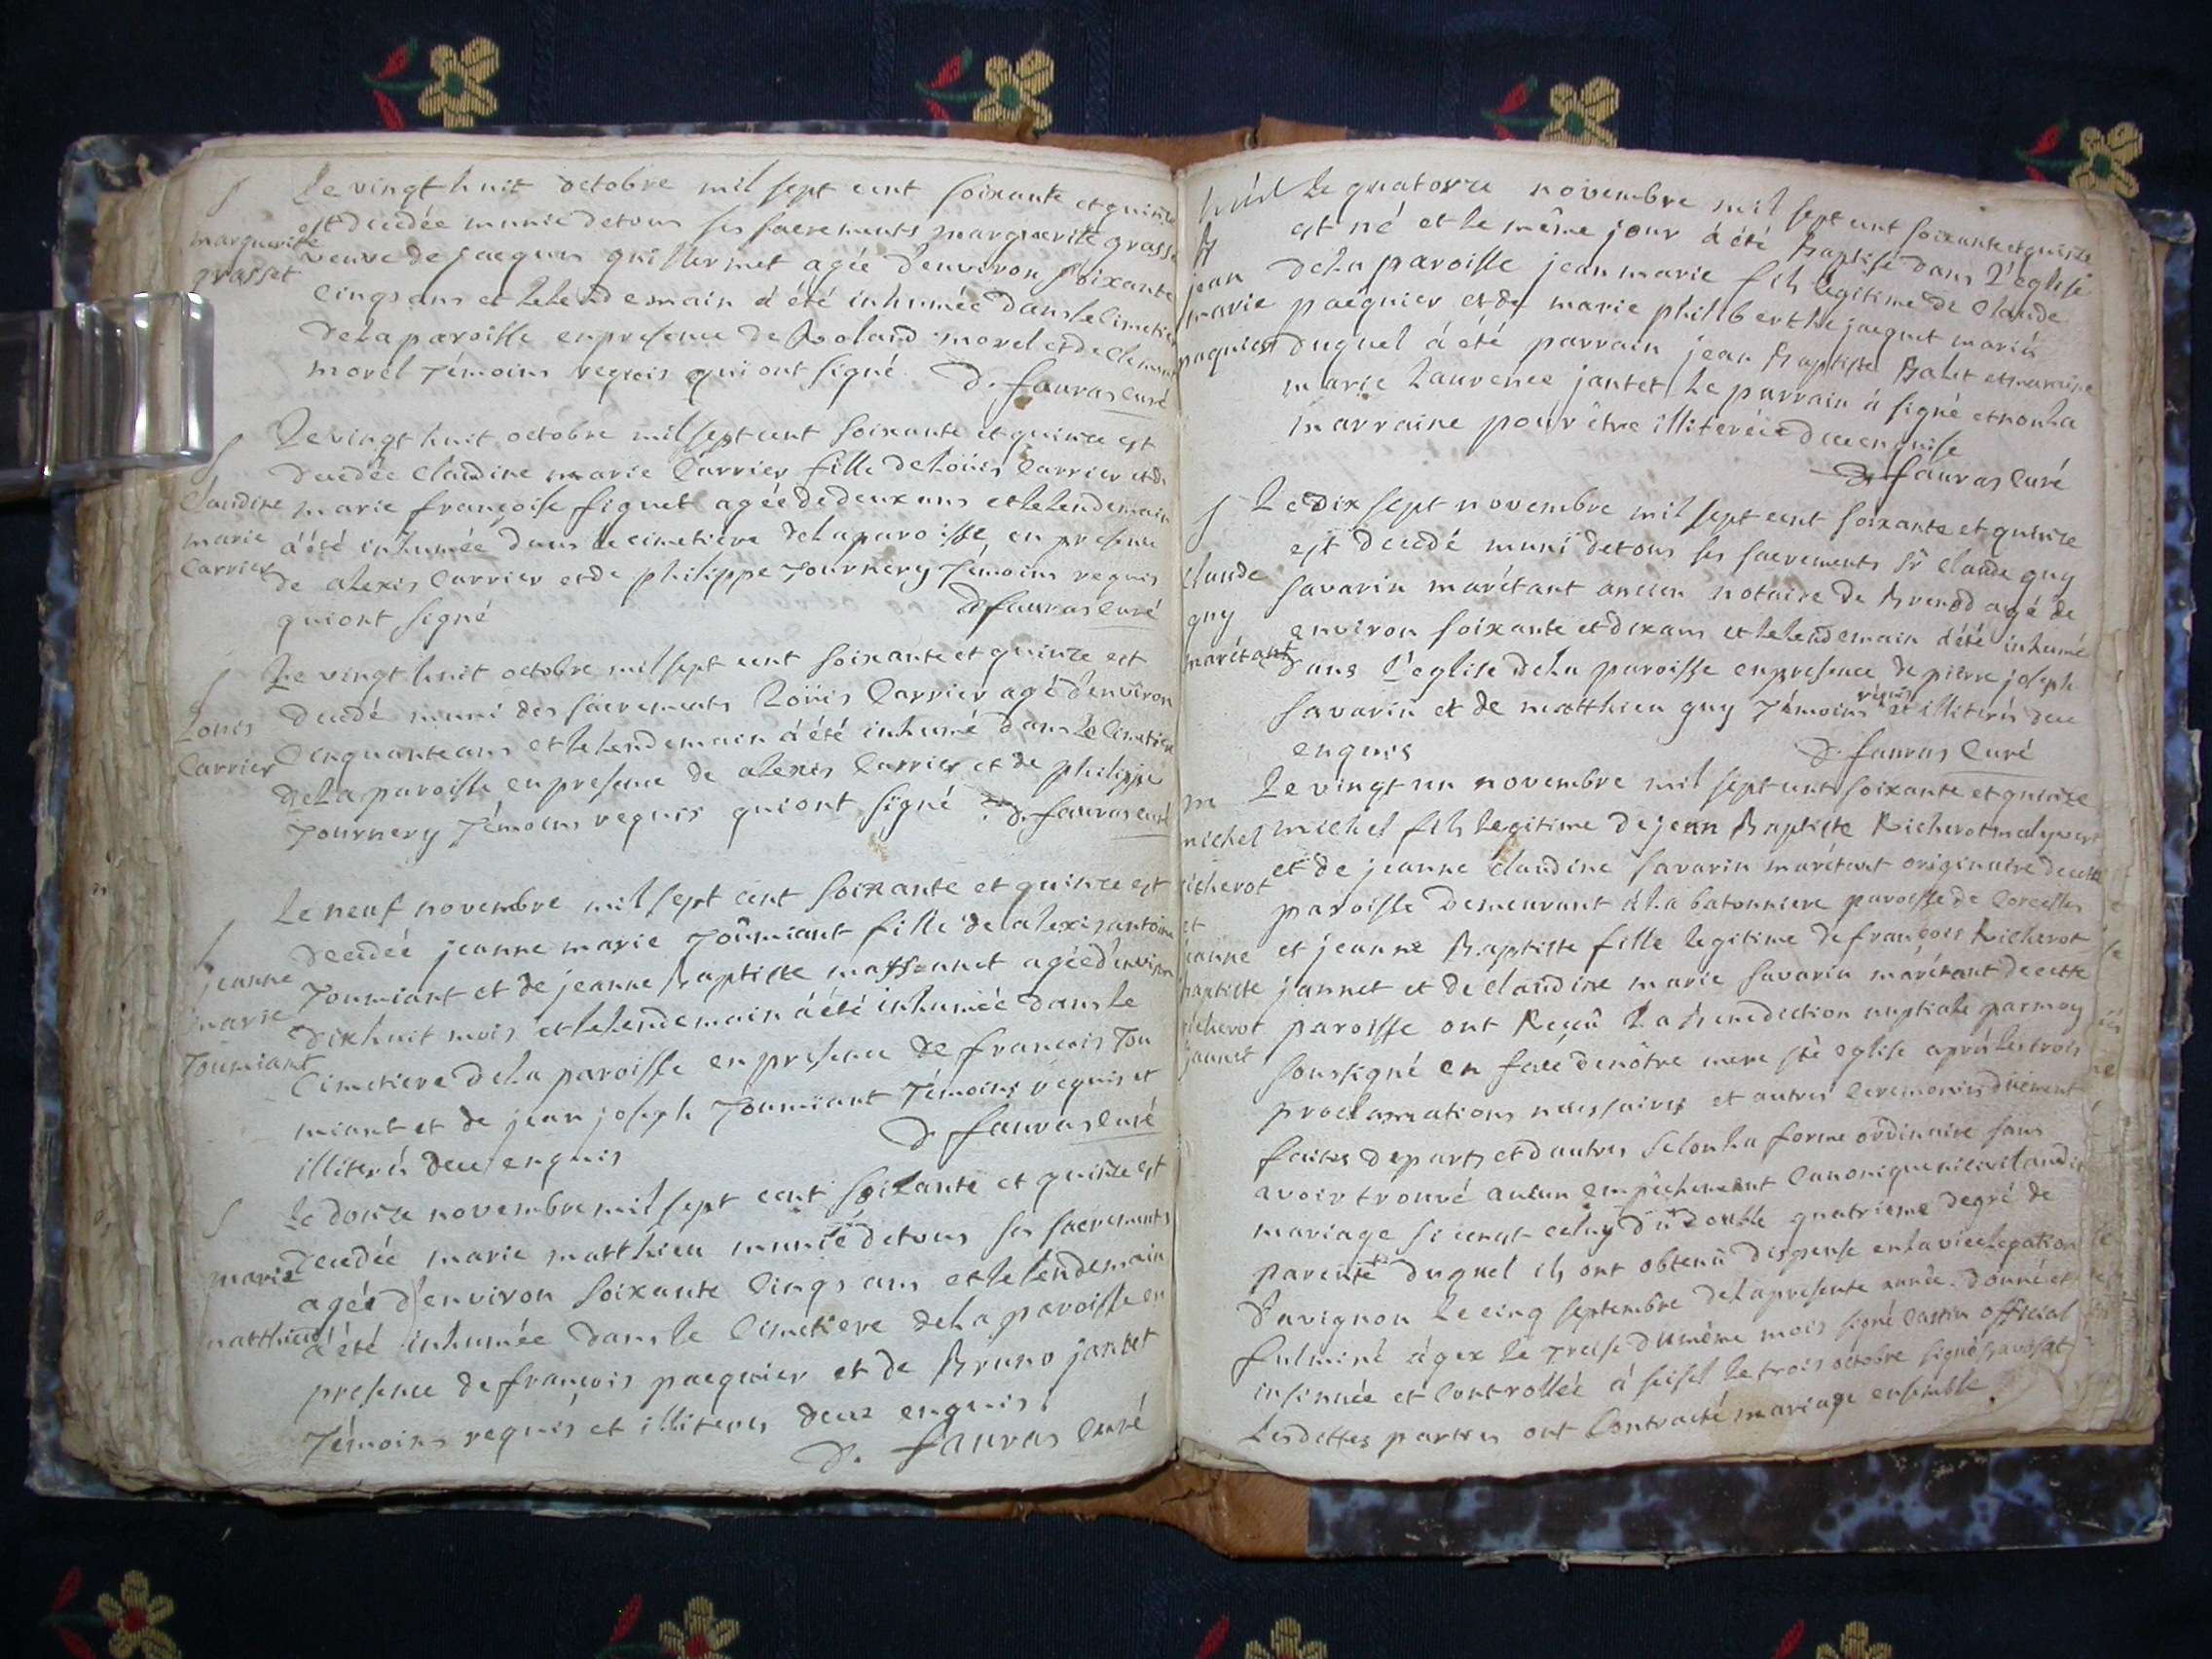 S
Le vingt huit octobre mil sept cent soixante et quinze
marguerite
est decedée munie de tous ses sacrements marguerite grasset
grasset
veuve de jacques guillermet agée d'environ soixante
cinqs ans et le lendemain á été inhumée dans le cimetier
de la paroisse en presence de Roland morel et de Clement
morel témoins requis qui ont signé D. fauras curé
S
Le vingt huit octobre mil sept cent soixante et quinze est
decedée Claudine marie Carrier fille de Loüis Carrier et de
Claudine
marie françoise figuet agée de deux ans et le lendemain
marie
á été inhumée dans le cimetiere de la paroisse en presence
Carrier
de alexis Carrier et de philippe Tournery témoins requis
qui ont signé D. fauras curé
S
Le vingt huit octobre mil sept cent soixante et quinze est
Louis
decedé muni des sacrements Loüis Carrier agé d'environ
Carrier
cinquante ans et le lendemain á été inhumé dans le cimetiere
de la paroisse en presence de alexis Carrier et de philippe
Tournery témoins requis qui ont signé D. fauras curé
S
Le neuf novembre mil sept cent soixante et quinze est
jeanne
decedée jeanne marie Toumiant fille de alexis antoine
marie
Toumiant et de jeanne Baptiste massonnet agée d'environ
Toumiant
dix huit mois et le lendemain á été inhumée dans le
Cimetiere de la paroisse en presence de francois Tou
miant et de jean joseph Toumiant témoins requis et
illiterés de ce enquis D. fauras curé
S
Le douze novembre mil sept cent soixante et quinze est
marie
decedée marie matthieu munie de tous ses sacrements
agée d'environ soixante cinqs ans et le lendemain
matthieu
á été inhumée dans le Cimetiere de la paroisse en
presence de francois pacquier et de Bruno jantet
Témoins requis et illiteres de ce enquis
D. fauras curé
B
Le quatorze novembre mil sept cent soixante et quinze
jean
est né et le même jour á été Baptisé dans l'eglise
marie
de la paroisse jean marie fils legitime de Claude
paquier
pacquier et de marie philiberthe jacquet mariés
duquel á été parrain jean Baptiste Balet et marraine
marie Laurence jantet Le parrain á signé et non la
marraine pour être illiterée de ce enquise
D. fauras curé
S
Le dix sept novembre mil sept cent soixante et quinze
est decedé muni de tous ses sacrements Sr Claude guy
Claude
savarin marétant ancien notaire de Brenod agé de
guy
environ soixante et dix ans et le lendemain á été inhumé
marétant
dans l'eglise de la paroisse en presence de pierre joseph
savarin et de matthieu guy témoins requis et illiterés de ce
enquis D. fauras curé
m
Le vingt un novembre mil sept cent soixante et quinze
michel
michel fils legitime de jean Baptiste Richerot
richerot
et de jeanne Claudine savarin marétant originaire de cette
et
paroisse demeurant á la batonniere paroisse de Corcelles
jeanne
et jeanne Baptiste fille legitime de françois Richerot
baptiste
jannet et de Claudine marie savarin marétant de cette
richerot
paroisse ont Reçeû La Benediction nuptiale par moy
jannet
soussigné en face de nôtre mere ste eglise aprés les trois
proclamations necessaires et autres ceremonies dûement
faites de parts et d autres selon la forme ordinaire sans
avoir trouvé aucun empêchement canonique ni civil audit
mariage si cenest celuy du double quatrieme degré de
parenté duquel ils ont obtenû dispense en la vice legation
d'avignon le cinq septembre de la presente année. donné et
fulminé á gex le treise du même mois signé castin official
insinuée et controllée á seisel le trois octobre signé
Lesdettes parties ont contracté mariage ensemble